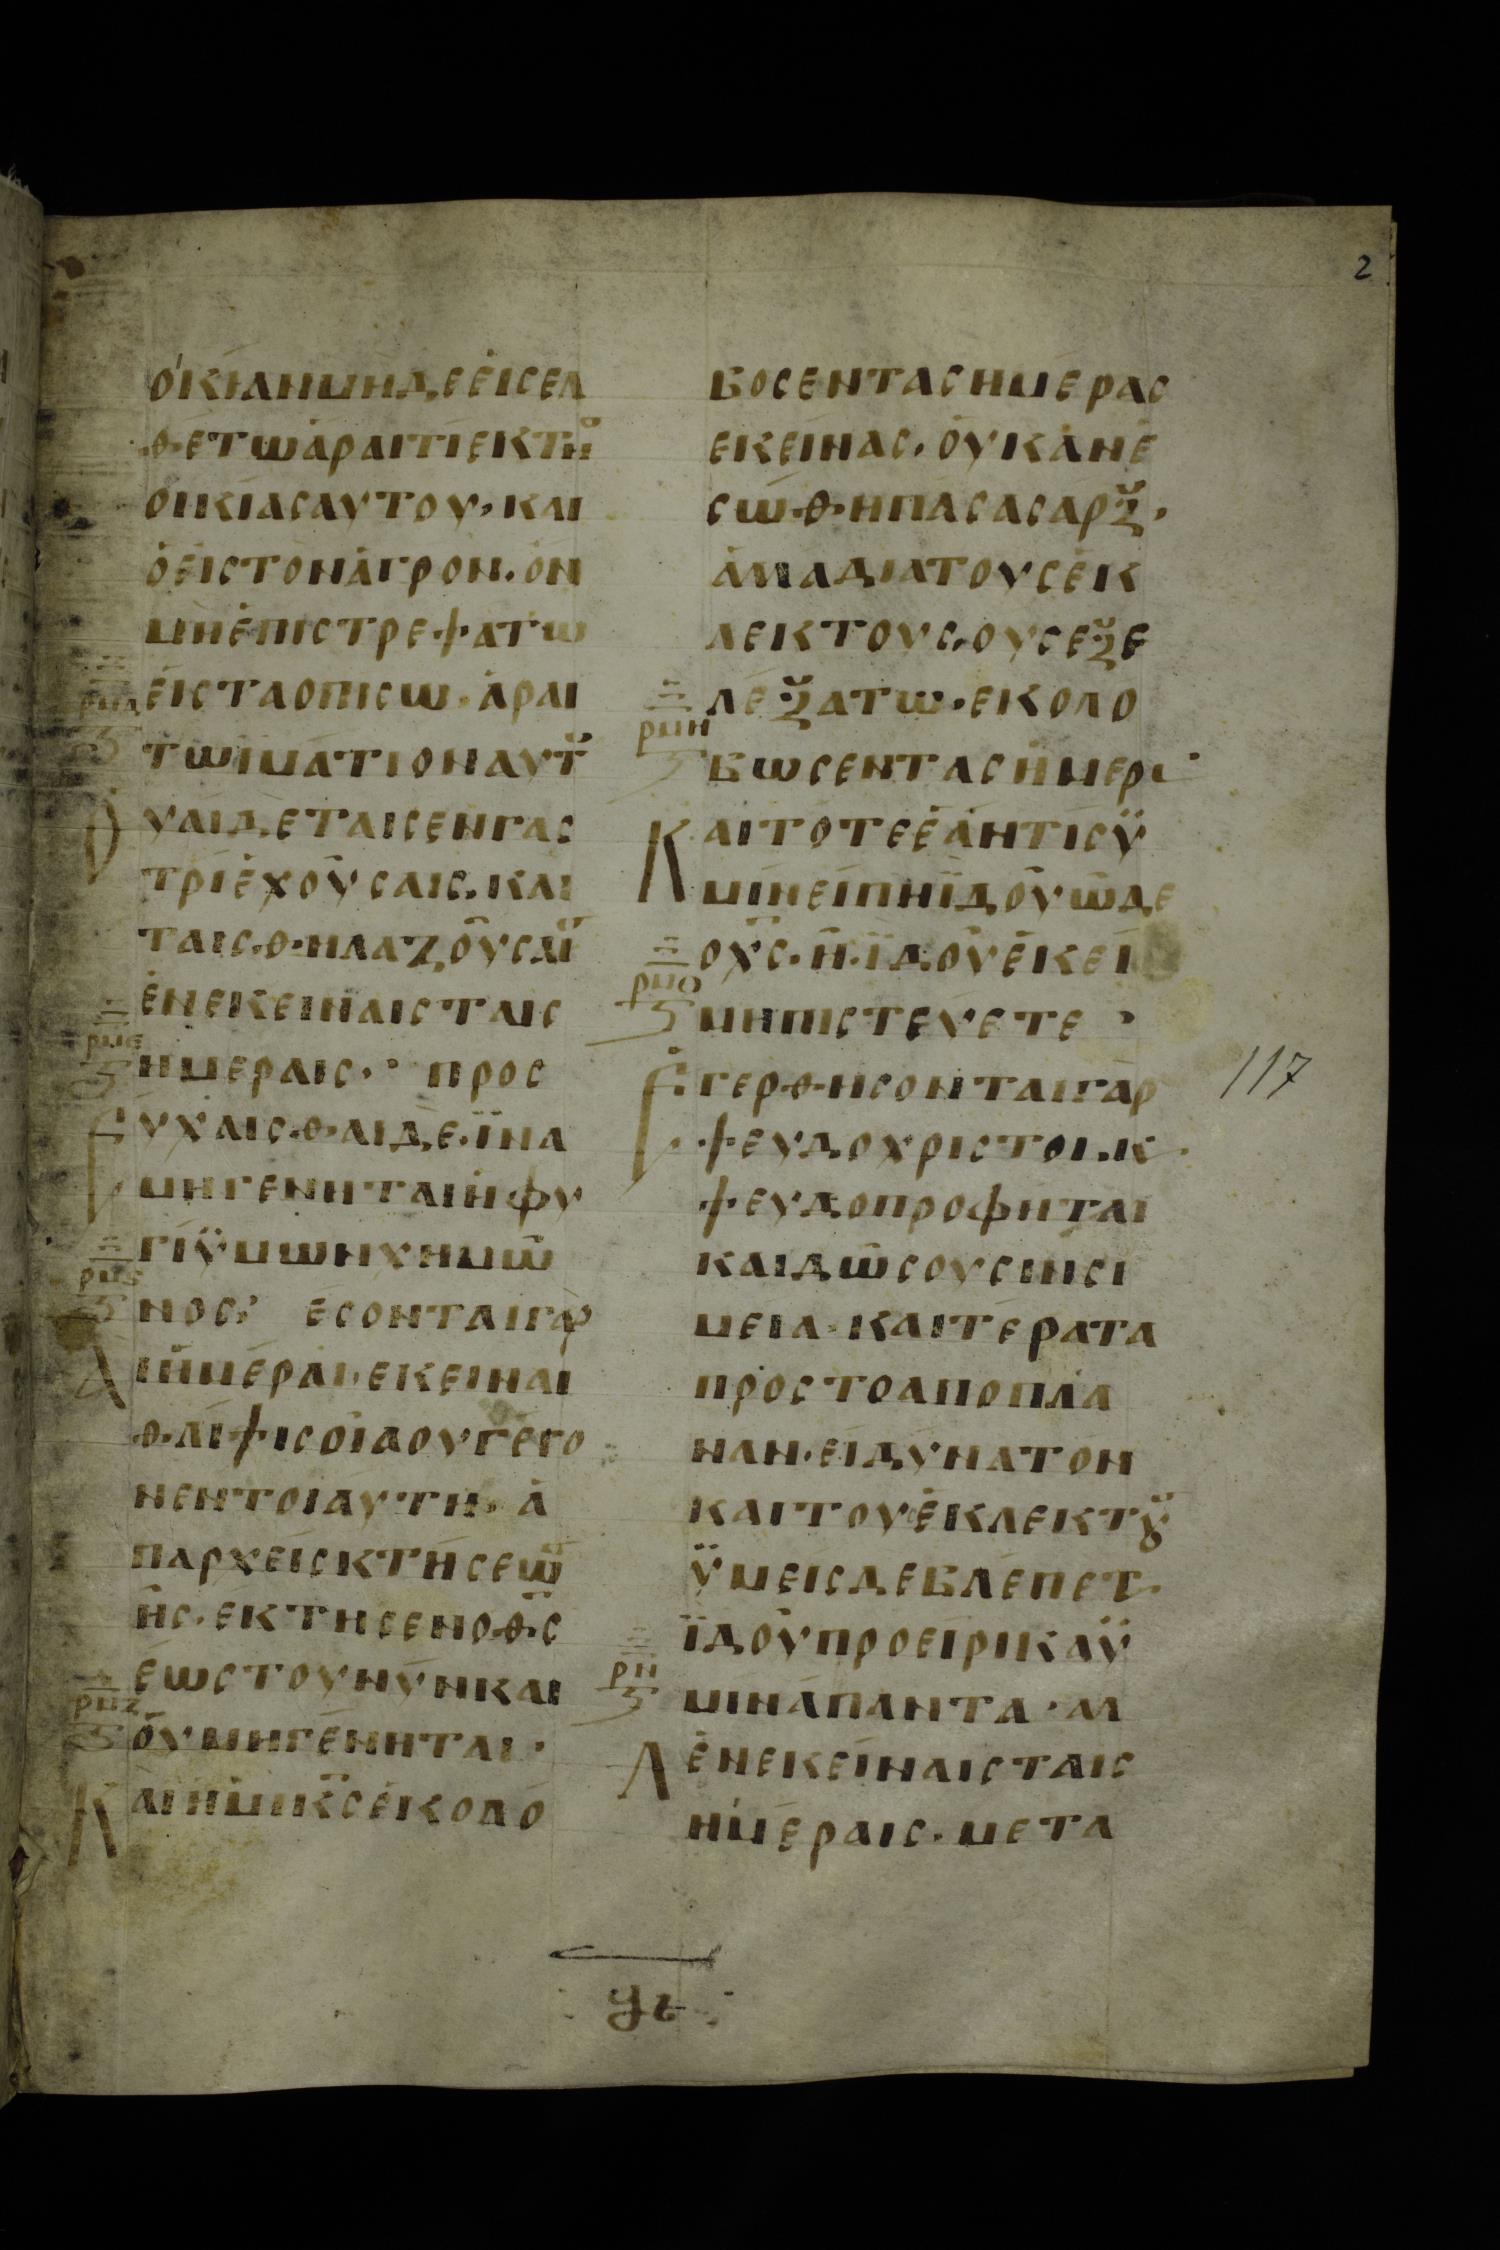 2
ΟΚΙΑΝΜΗΔΕΕΙΣΕΛ
ΘΕΤΩΑΡΑΙΤΙΕΚΤΗϹ
ΟΙΚΙΑϹΑΥΤΟΥ, ΚΑΙ
ΟΕΙϹΤΟΝΑΓΡΟΝ. ΟΝ
ΜΗΕΠΙϹΤΡΕΨΑΤΩ
ΕΙϹΤΑΟΠΙϹΩ. ΑΡΑΙ
ΤΩΙΜΑΤΙΟΝΑΥΤΟΥ
ΟΥΑΙΔΕΤΑΙϹΕΝΓΑϹ
ΤΡΙΕΧΟΥϹΑΙϹ. ΚΑΙ
ΤΑΙϹΘΗΛΑΖΟΥϹΑΙϹ
ΕΝΕΚΕΙΝΑΙϹΤΑΙϹ
ΗΜΕΡΑΙϹ· ΠΡΟϹ
ΕΥΧΑΙϹΘΑΙΔΕ. ΪΝΑ
ΜΗΓΕΝΗΤΑΙΗΦΥ
ΓΙΫΜΩΝΧΗΜΩ
ΝΟϹ· ΕϹΟΝΤΑΙΓΑΡ
ΑΙΗΜΕΡΑΙ. ΕΚΕΙΝΑΙ
ΘΛΙΨΙϹΟΙΑΟΥΓΕΓΟ
ΝΕΝΤΟΙΑΥΤΗ, Α
ΠΑΡΧΕΙϹΚΤΗϹΕΩϹ
ΗϹ. ΕΚΤΗϹΕΝΟΘϹ
ΕΩϹΤΟΥΝΥΝΚΑΙ
ΟΥΜΗΓΕΝΗΤΑΙ·
ΚΑΙΗΜΙΚϹΕΚΟΛΟ
ΒΟϹΕΝΤΑϹΗΜΕΡΑϹ
ΕΚΕΙΝΑϹ. ΟΥΚΑΝΕ
ϹΩΘΗΠΑϹΑϹΑΡΞ.
ΑΜΑΔΙΑΤΟΥϹΕΚ
ΛΕΚΤΟΥϹ. ΟΥϹΕΞΕ
ΛΕΞΑΤΩ. ΕΚΟΛΟ
ΒΩϹΕΝΤΑϹΗΜΕΡΑϹ
ΚΑΙΤΟΤΕΕΑΝΤΙϹΫ
ΜΙΝΕΙΠΗΪΔΟΥΩΔΕ
ΟΧϹ. Η. ΪΔΟΥΕΚΕΙ
ΜΗΠΙϹΤΕΥΕΤΕ ·
ΕΓΕΡΘΗϹΟΝΤΑΙΓΑΡ
ΨΕΥΔΟΧΡΙϹΤΟΙ. Κ
ΨΕΥΔΟΠΡΟΦΗΤΑΙ
ΚΑΙΔΩϹΟΥϹΙΝϹΙ
ΜΕΙΑ. ΚΑΙΤΕΡΑΤΑ
ΠΡΟϹΤΟΑΠΟΠΛΑ
ΝΑΝ. ΕΙΔΥΝΑΤΟΝ
ΚΑΙΤΟΥΕΚΛΕΚΤȢ
ΫΜΕΙϹΔΕΒΛΕΠΕΤ
ΪΔΟΥΠΡΟΕΙΡΙΚΑΫ
ΜΙΝΑΠΑΝΤΑ. Μ
ΛΕΝΕΚΕΙΝΑΙϹΤΑΙϹ
ΗΜΕΡΑΙϹ. ΜΕΤΑ
117